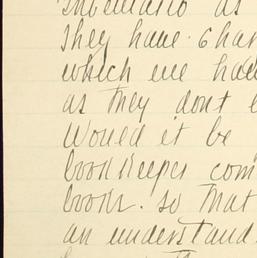 as
they have. 6 char
which we had
as they dont e
Would it be
bookkeeper com
books. so that
an understand